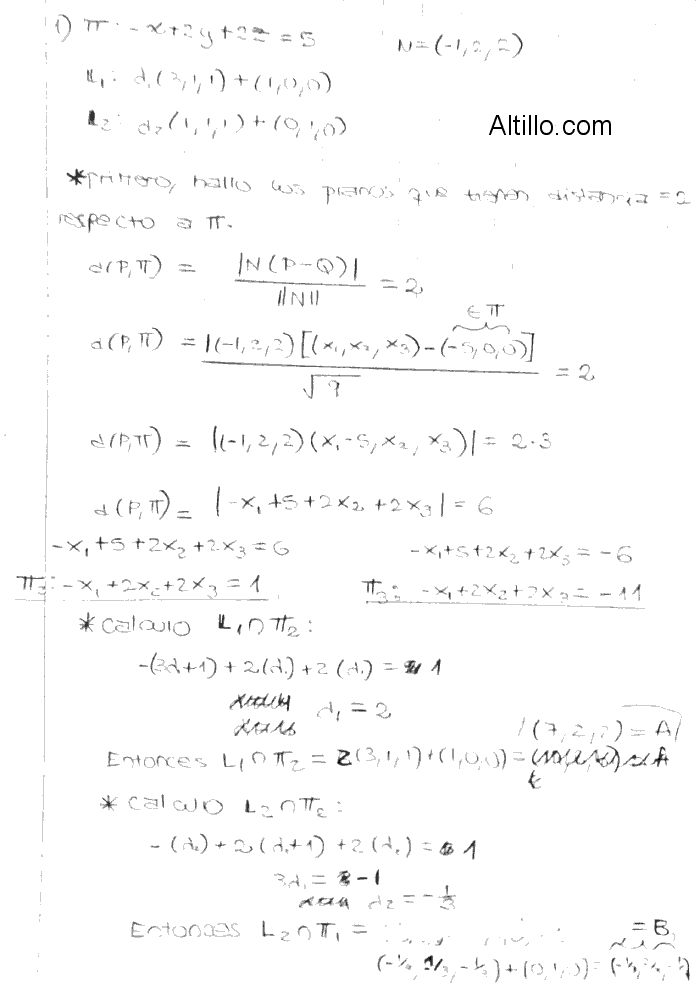 1) π: -x+2y+2z=5 N=(-1,2,2)
L₁: α₁(3,1,1)+(1,0,0)
L₂: α₂(1,1,1)+(0,1,0)
Altillo.com
*primero, hallo los planos que tienen distancia=2
respecto a π.
d(P,π) = |N(P-Q)| / ||N|| = 2
∈π
d(P,π) = |(-1,2,2)[(x₁,x₂,x₃)-(-5,0,0)]| / √9 = 2
d(P,π) = |(-1,2,2)(x₁-5,x₂,x₃)| = 2·3
d(P,π) = |-x₁+5+2x₂+2x₃| = 6
-x₁+5+2x₂+2x₃=6 -x₁+5+2x₂+2x₃=-6
π₂: -x₁+2x₂+2x₃=1 π₃: -x₁+2x₂+2x₃=-11
*calculo L₁∩π₂:
-(3α₁+1)+2(α₁)+2(α₁)=1
α₁=2
/(7,2,2)=A/
Entonces L₁∩π₂=2(3,1,1)+(1,0,0)=
*calculo L₂∩π₂:
-(α₂)+2(α₂+1)+2(α₂)=1
3α₂=-1
α₂=-1/3
Entonces L₂∩π₁= =B
(-1/3,-1/3,-1/3)+(0,1,0)=(-1/3,2/3,-1/3)